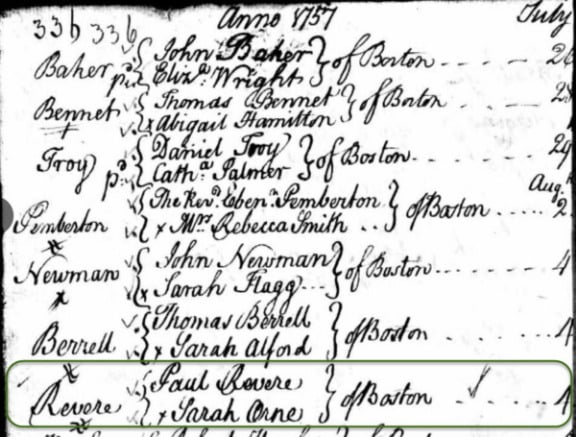 336 336 Anno 1757 July
Baher p.d John Baher of Boston 26
Eliz.a Wright
Bennet Thomas Bennet of Boston 28
x Abigail Hamilton
Troy p.d Daniel Troy of Boston 29
Cath.a Palmer
Aug.t
Pemberton The Rev.d Eben.r Pemberton of Boston 2
x Mrs Rebecca Smith
Newman John Newman of Boston 4
x Sarah Flagg
Berrell Thomas Berrell of Boston 4
x Sarah Alford
Revere Paul Revere of Boston 4
x Sarah Orne